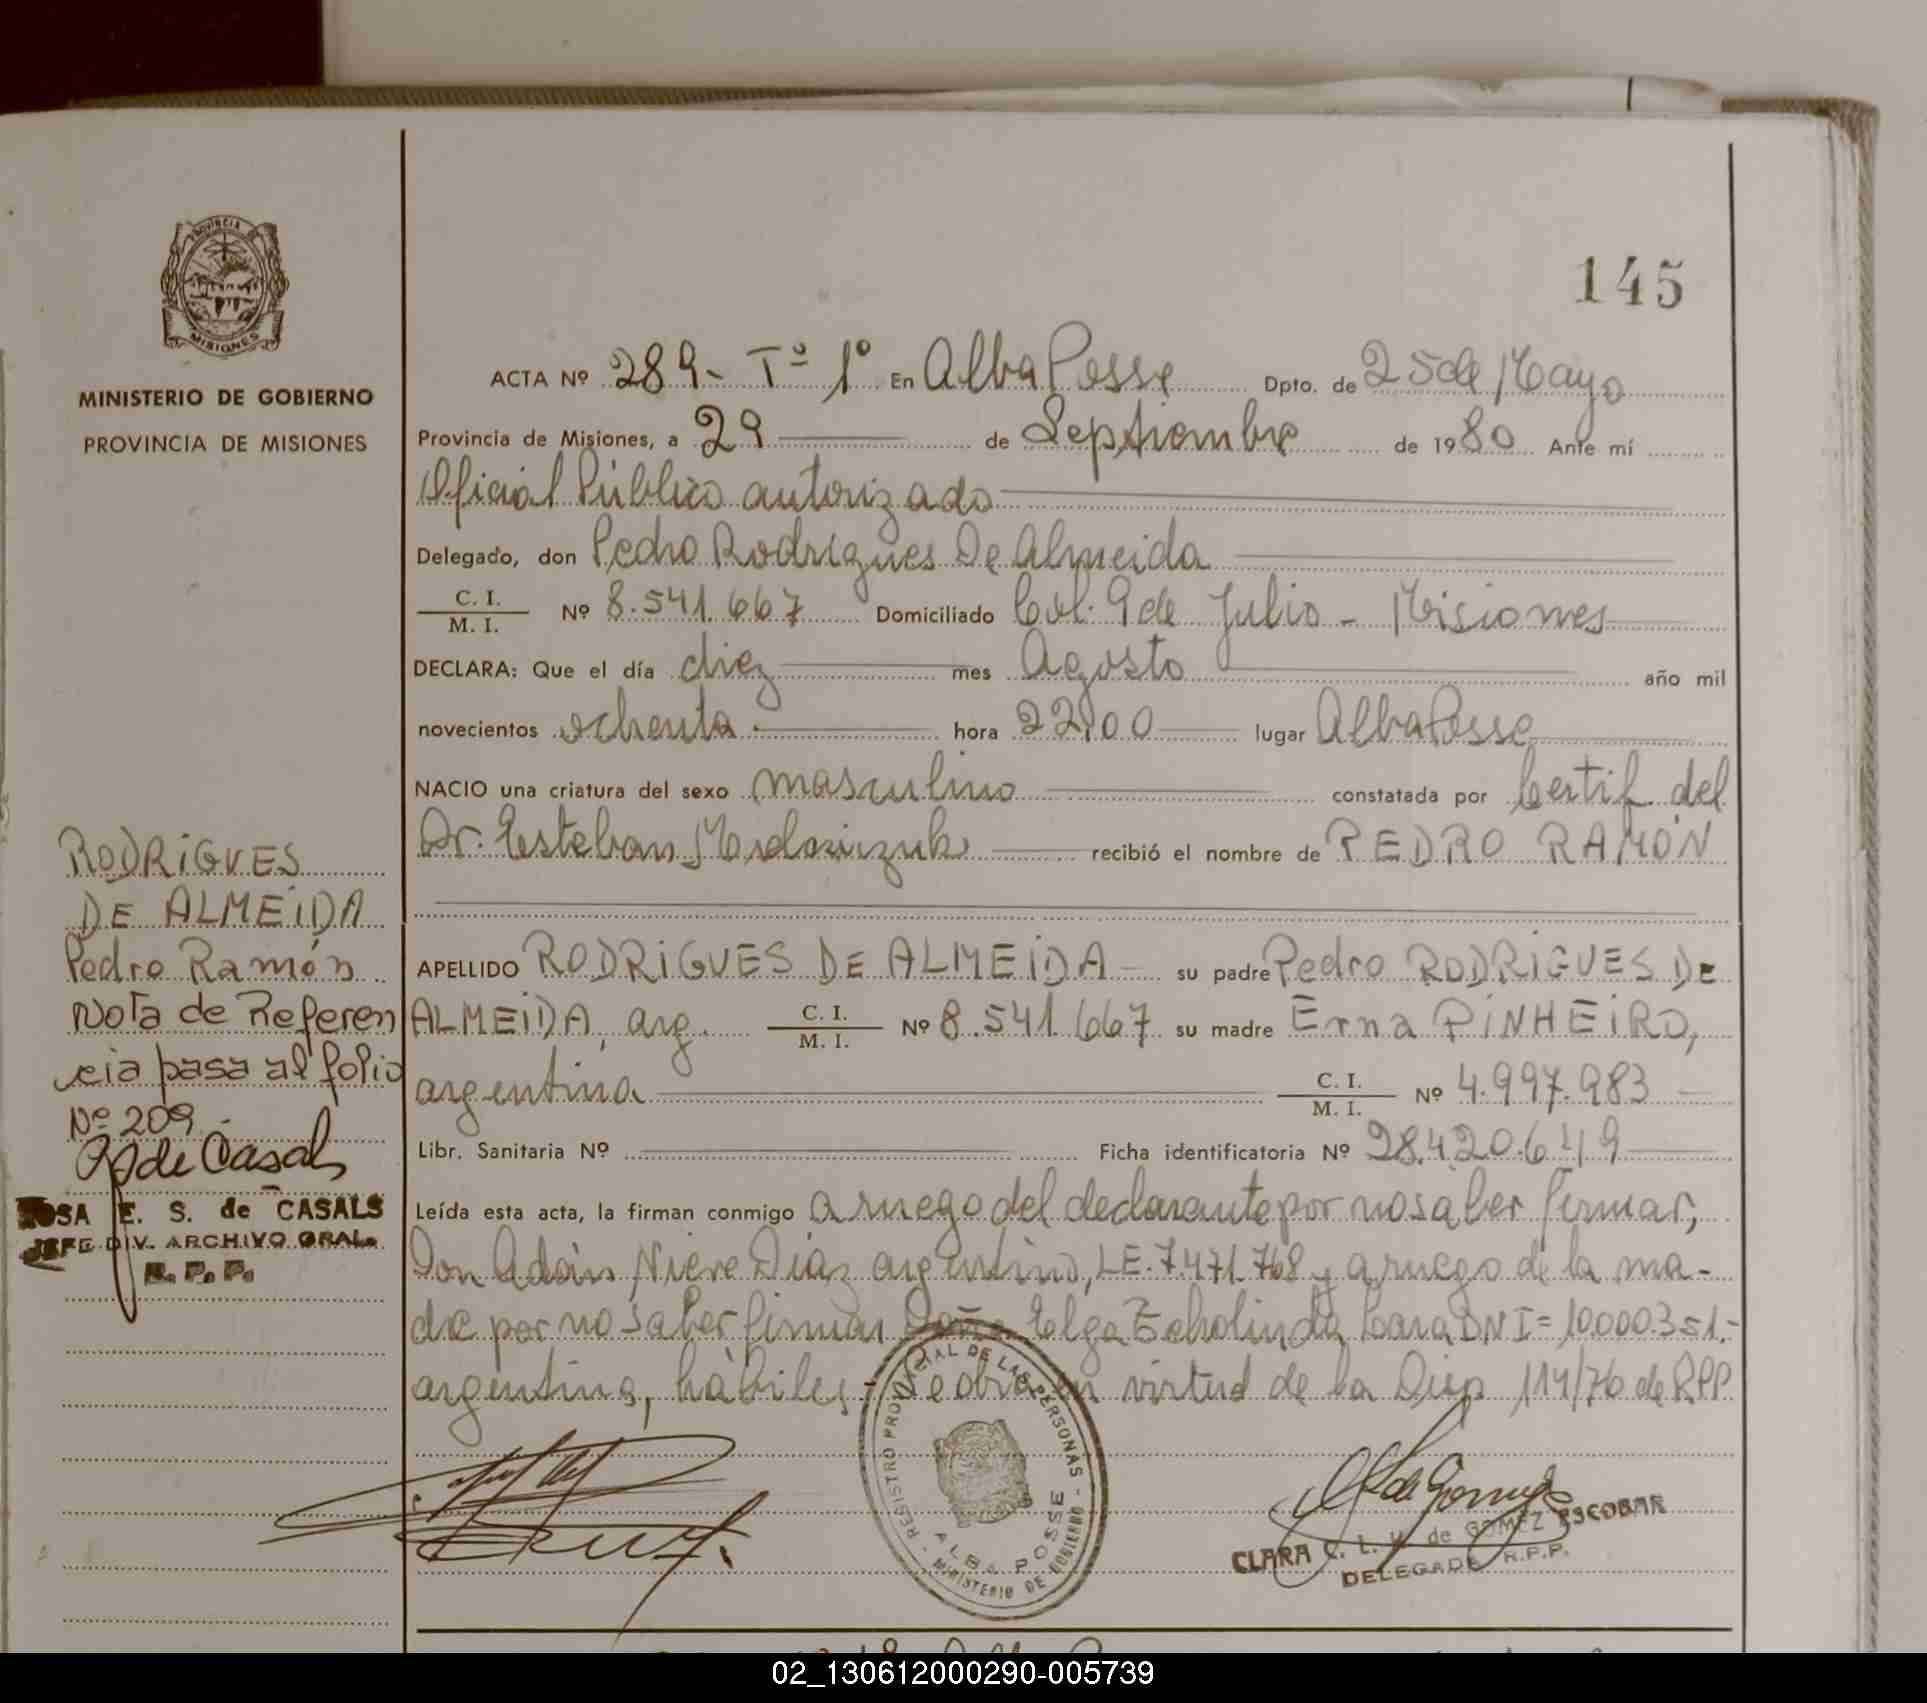 145
PROVINCIA DE
MISIONES
MINISTERIO DE GOBIERNO
PROVINCIA DE MISIONES
ACTA Nº 289- Tº 1º En Alba Posse Dpto. de 25 de Mayo
Provincia de Misiones, a 29 de Septiembre de 1980 Ante mí
Oficial Público autorizado
Delegado, don Pedro Rodrigues De Almeida
C. I.
M. I. Nº 8.541.667 Domiciliado Col. 9 de Julio - Misiones
DECLARA: Que el día diez mes Agosto año mil
novecientos ochenta hora 22,00 lugar Alba Posse
NACIO una criatura del sexo masculino constatada por Certif. del
Dr. Esteban recibió el nombre de PEDRO RAMÓN
APELLIDO RODRIGUES DE ALMEIDA su padre Pedro RODRIGUES DE
ALMEIDA, arg. C. I. M. I. Nº 8.541.667 su madre Erna PINHEIRO,
argentina C. I. M. I. Nº 4.997.983
Libr. Sanitaria Nº Ficha identificatoria Nº 28.420.649
Leída esta acta, la firman conmigo a ruego del declarante por no saber firmar,
Don Adán Nieve Diaz argentino, LE. 7.471.768 y a ruego de la ma-
dre por no saber firmar Doña Elga Lara DNI= 10.000.351.-
argentina, hábiles.- Se obra en virtud de la Disp 114/76 de R.P.P
RODRIGUES
DE ALMEIDA
Pedro Ramón
Nota de Referen
cia pasa al folio
Nº 209
R de Casals
ROSA E. S. de CASALS
JEFE DIV. ARCHIVO GRAL.
R. P. P.
REGISTRO PROVINCIAL DE LAS PERSONAS - MINISTERIO DE GOBIERNO -
ALBA POSSE
de Gomez
CLARA C. L. V. de GOMEZ ESCOBAR
DELEGADA R.P.P.
02_130612000290-005739